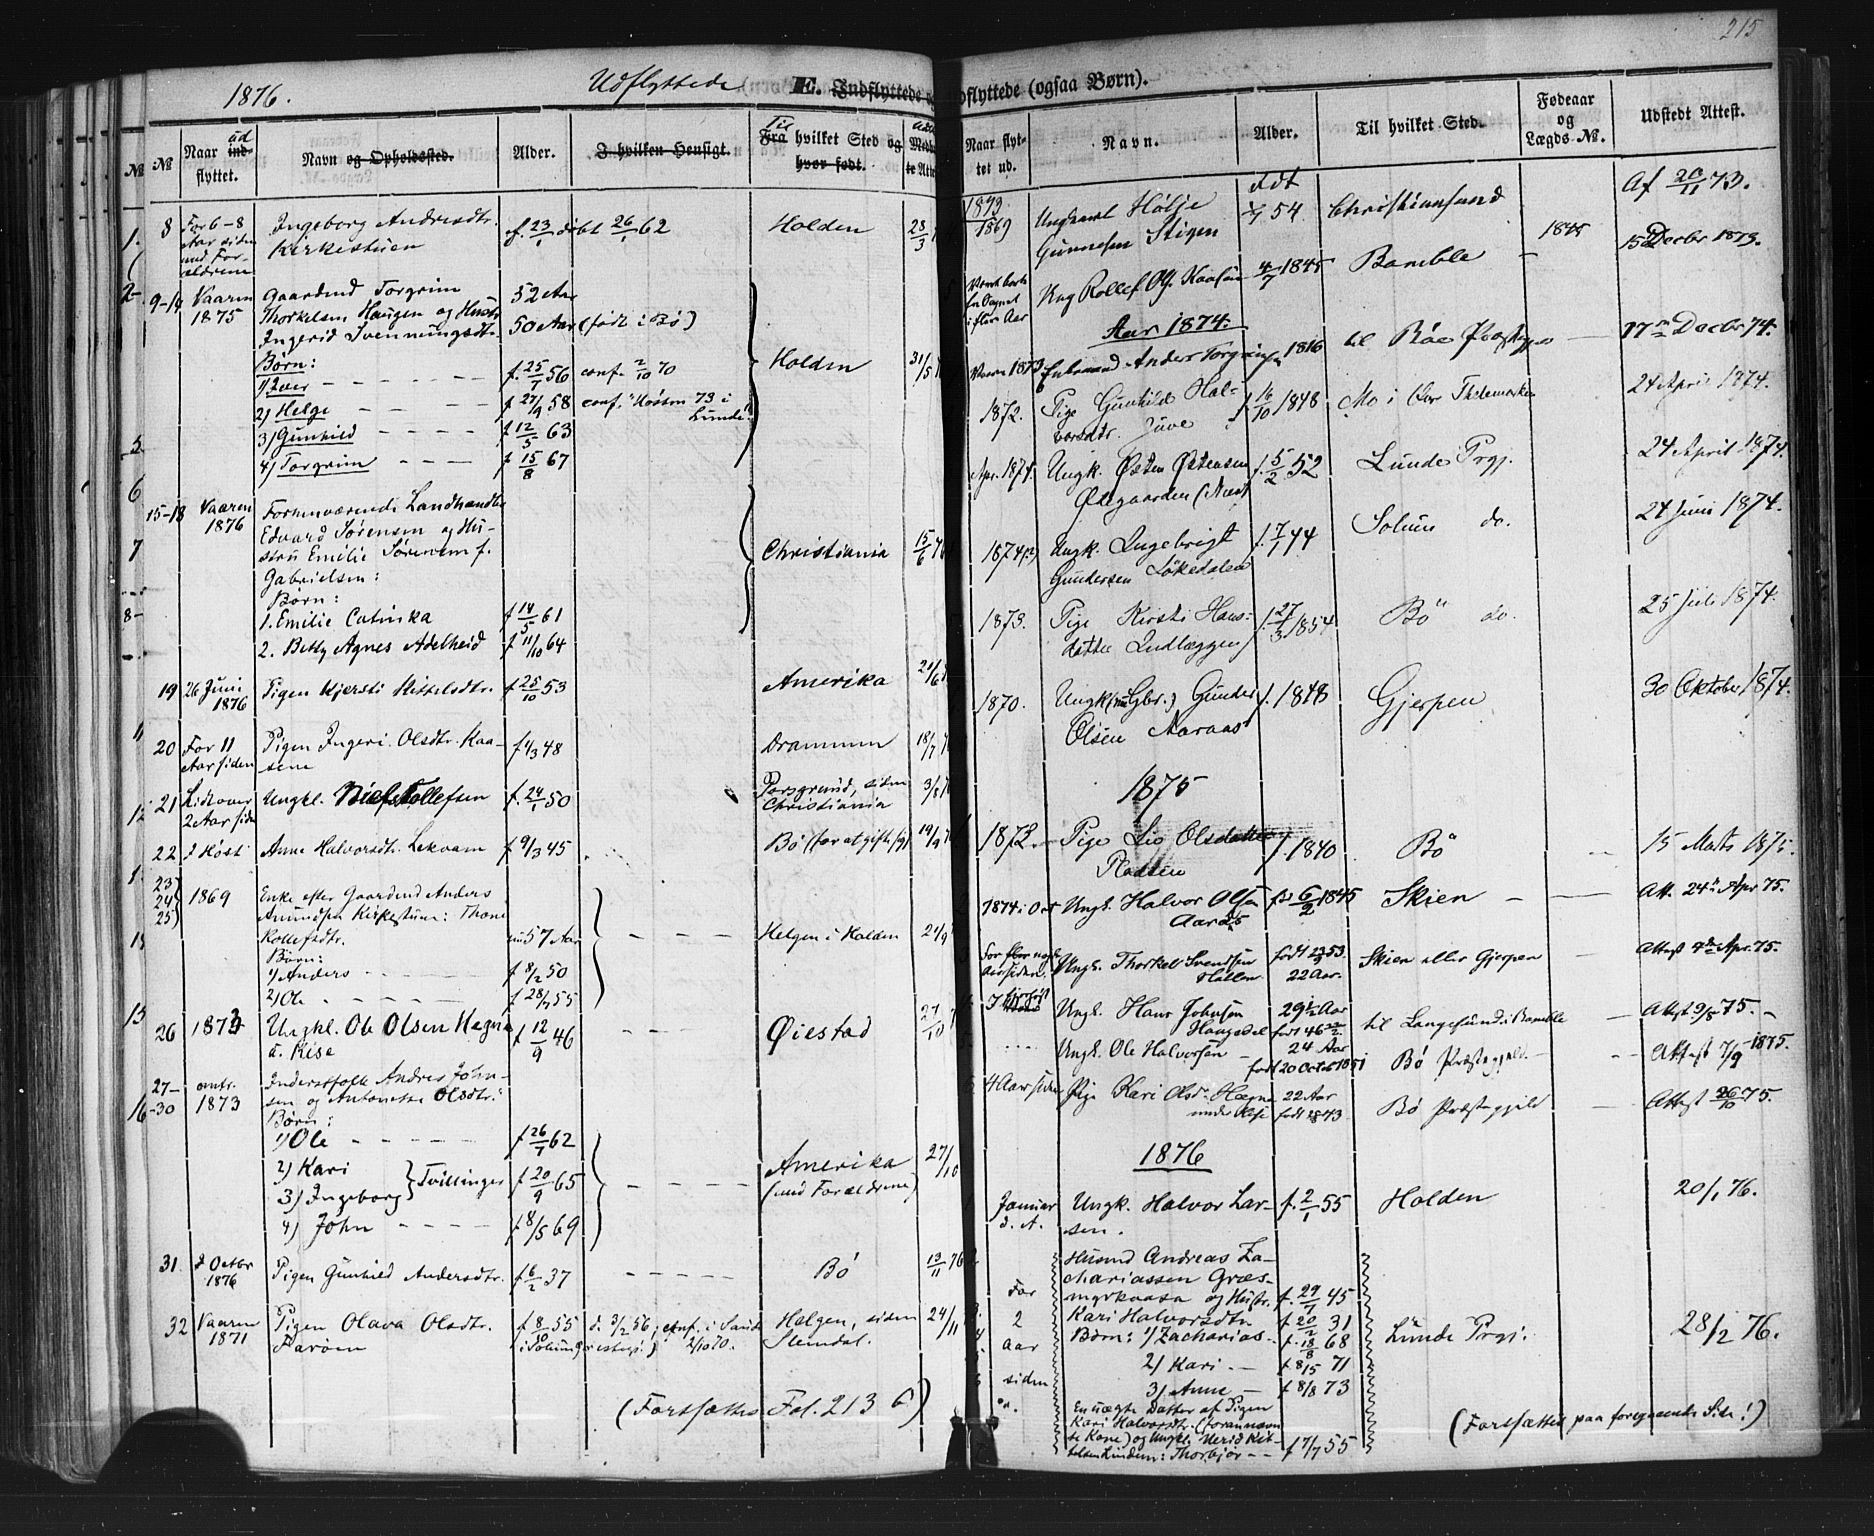 215
1876.
Udflyttede
E. Indflyttede
№
№
Naar ind- ud
flyttet.
Navn og Opholdssted.
Alder.
I hvilken Hensigt.
Til
Fra hvilket Sted og
hvor født.
8
For 6-8
Aar siden
med For-
ældrene
Ingeborg Andresdtr.
Kirkestuen
f. 23/1 døbt 26/1 62
Holden
28/3
9-14
Vaaren
1875
Gaardmd Torgrim
Thorkelsen Haugen og Hustr.
Ingerid Svenningsdtr.
52 Aar
50 Aar (født i Bø)
Børn:
f. 25/7 56 conf. 2/10 70
Holden
31/5
2) Helge
f 27/9 58 conf. Høsten 73 i
Lunde
3) Gunhild
f 12/5 63
4) Torgrim
f 15/8 67
15-18
Vaaren
1876
Forhenværende Landhandler
Edvard Sørensen og Hu-
stru Emilie Sørensen f.
Gabrielsen:
Christiania
15/6 76
Børn:
1. Emilie Catinka
f 14/5 61
2. Betty Agnes Adelheid
f 11/10 64
19
26 Juni
1876
Pigen Kjersti Kittelsdtr.
f 25/10 53
Amerika
21/6
20
For 11
Aar siden
Pigen Ingeri Olsdtr. Kaa-
sene
f 4/3 48
Drammen
18/7
21
Lidt over
2 Aar siden
Ungkl. Niels Rollefsen
f. 24/1 50
Porsgrund, siden
Christiania
3/8
22
i Høst
Anne Halvorsdtr. Lekvam
f 9/3 45
Bø (for at gifte sig)
19/9
23
24
25
1869
Enke efter Gaardmd Anders
Amundsen Kirkestuen: Thone
Rollefsdtr.
57 Aar
Helgen i Holden
21/9
Børn:
1) Anders
f 8/2 50
2) Ole
f 28/7 55
26
1873
Ungkl. Ole Olsen Hegna
u. Rise
f 12/9 46
Øiestad
27/10
27-
-30
omtr.
1873
Inderstfolk Andres John-
sen og Antonette Olsdtr.:
Børn:
1) Ole
f 26/7 62
2) Kari
3) Ingeborg } Tvillinger
f 20/9 65
Amerika
(med Forældrene)
27/10
4) John
f 4/5 69
31.
i Octbr
1876
Pigen Gunhild Andersdtr.
f 6/2 37
Bø
13/11 76
32
Vaaren
1871
Pigen Olava Olsdtr.
Farøen
f 8/1 55 d. 3/2 56; conf. i Sande
Helgen, siden
Stendal.
24/11
(Fortsættes Fol. 213 b)
dflyttede (ogsaa Børn).
Naar flyt-
tet ud.
Navn.
Alder.
Til hvilket Sted.
Fødeaar
og
Lægds-№.
Udstedt Attest.
1873
1869
Ungkarl Høljе
Gunnesen Stigen
født
54
Christiansund
Af 20/11 73.
Ung Rollef Kaasen
4/7 1845
Bamble
1845
15 Decbr 1873.
Aar 1874.
Vaaren 1873
Enkemand Anders Torgrimsen 1816
til Bøe Præstegj
17 Decbr 74.
1872.
Pige Gunhild Hal-
vorsdtr. Juve
f 16/10 1848
Mo i Øvr Thelemarken
24 April 1874.
Apr. 1874.
Ungk. Østen Østensen
Østegaarden (Næs)
f. 5/2 52
Lunde Prgj.
24 April 1874.
1874(?)
Ungk. Ingebrigt
Gundersen Løkedalen
f. 7/1 44
Solum do.
24 Juni 1874.
1873.
Pige Kirsti Hans-
datter Indlæggen
f. 27/3 1854
Bö do.
25 Juli 1874.
1870.
Ungk. Gunder
Olsen Aaraas
f. 1848
Gjerpen
30 Oktober 1874.
1875
1873
Pige Liv Olsdatter
Pladsen
f. 1840
Bö
15 Marts 1875.
1874 i Oct
Ungk. Halvor Olsen
Aaraas
6/2 1845
Skien
Att. 24 Apr 75.
For flere
Aar siden
Ungk. Thorkel Svendsen
Hallen
født 53.
22 Aar.
Skien eller Gjerpen
Attest 7de Apr. 75.
Ungk. Hans Johnsen
Haugedal
29½ Aar
født 46
til Langesund i Bamble
Attest 9/8 75.
Ungk. Ole Halvorsen
24 Aar
født 20 Octob 1851
Bø Præstegjeld
Attest 7/9 1875.
4 Aar siden
Pige Kari Olsdr. Hægna
under Rise
22 Aar
født 1843
Bø Præstegjeld
Attest 26/10 75.
1876
Januar
d. A.
Ungk. Halvor Lar-
sen.
f. 2/1 55
Holden
20/1 76.
For
2
Aar
siden
Husmd Andreas Za-
chariassen Græs-
myrkaasa og Hustr.
f. 29/7 45
Kari Halvorsdtr
f 20/2 31
Børn: 1) Zacharias
f. 18/8 68
Lunde Prgj.
28/2 76.
2) Kari
f 8/5 71
3) Anne
f 8/8 73
En uægte Datter af Pigen
Kari Halvorsdtr. (forannævn
te Kone) og Ungkl. Nerid Kit-
telsen Linden: Thorbjør
f 17/7 55
(Fortsættes paa foregaaende Side!)